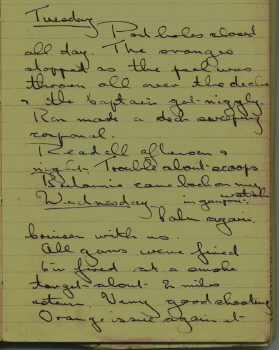 Tuesday Port holes closed
all day. The oranges
stopped as the peel was
thrown all over the decks
& the Captain got niggly.
Ron made a deck sweeping
corporal.
Read all afternoon &
night. Trouble about scoops
Britannic came back on my watch
Wednesday in gunpit.
Calm again
cruiser with us.
All guns were fired
6in fired at a smoke
target about 2 miles
astern. Very good shooting
Orange issue again at